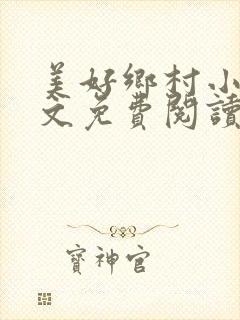 美好鄉村小
文免費閱讀
寶神官